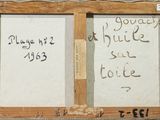 Plage n°2
1963
gouache
et huile
sur
toile
133-2